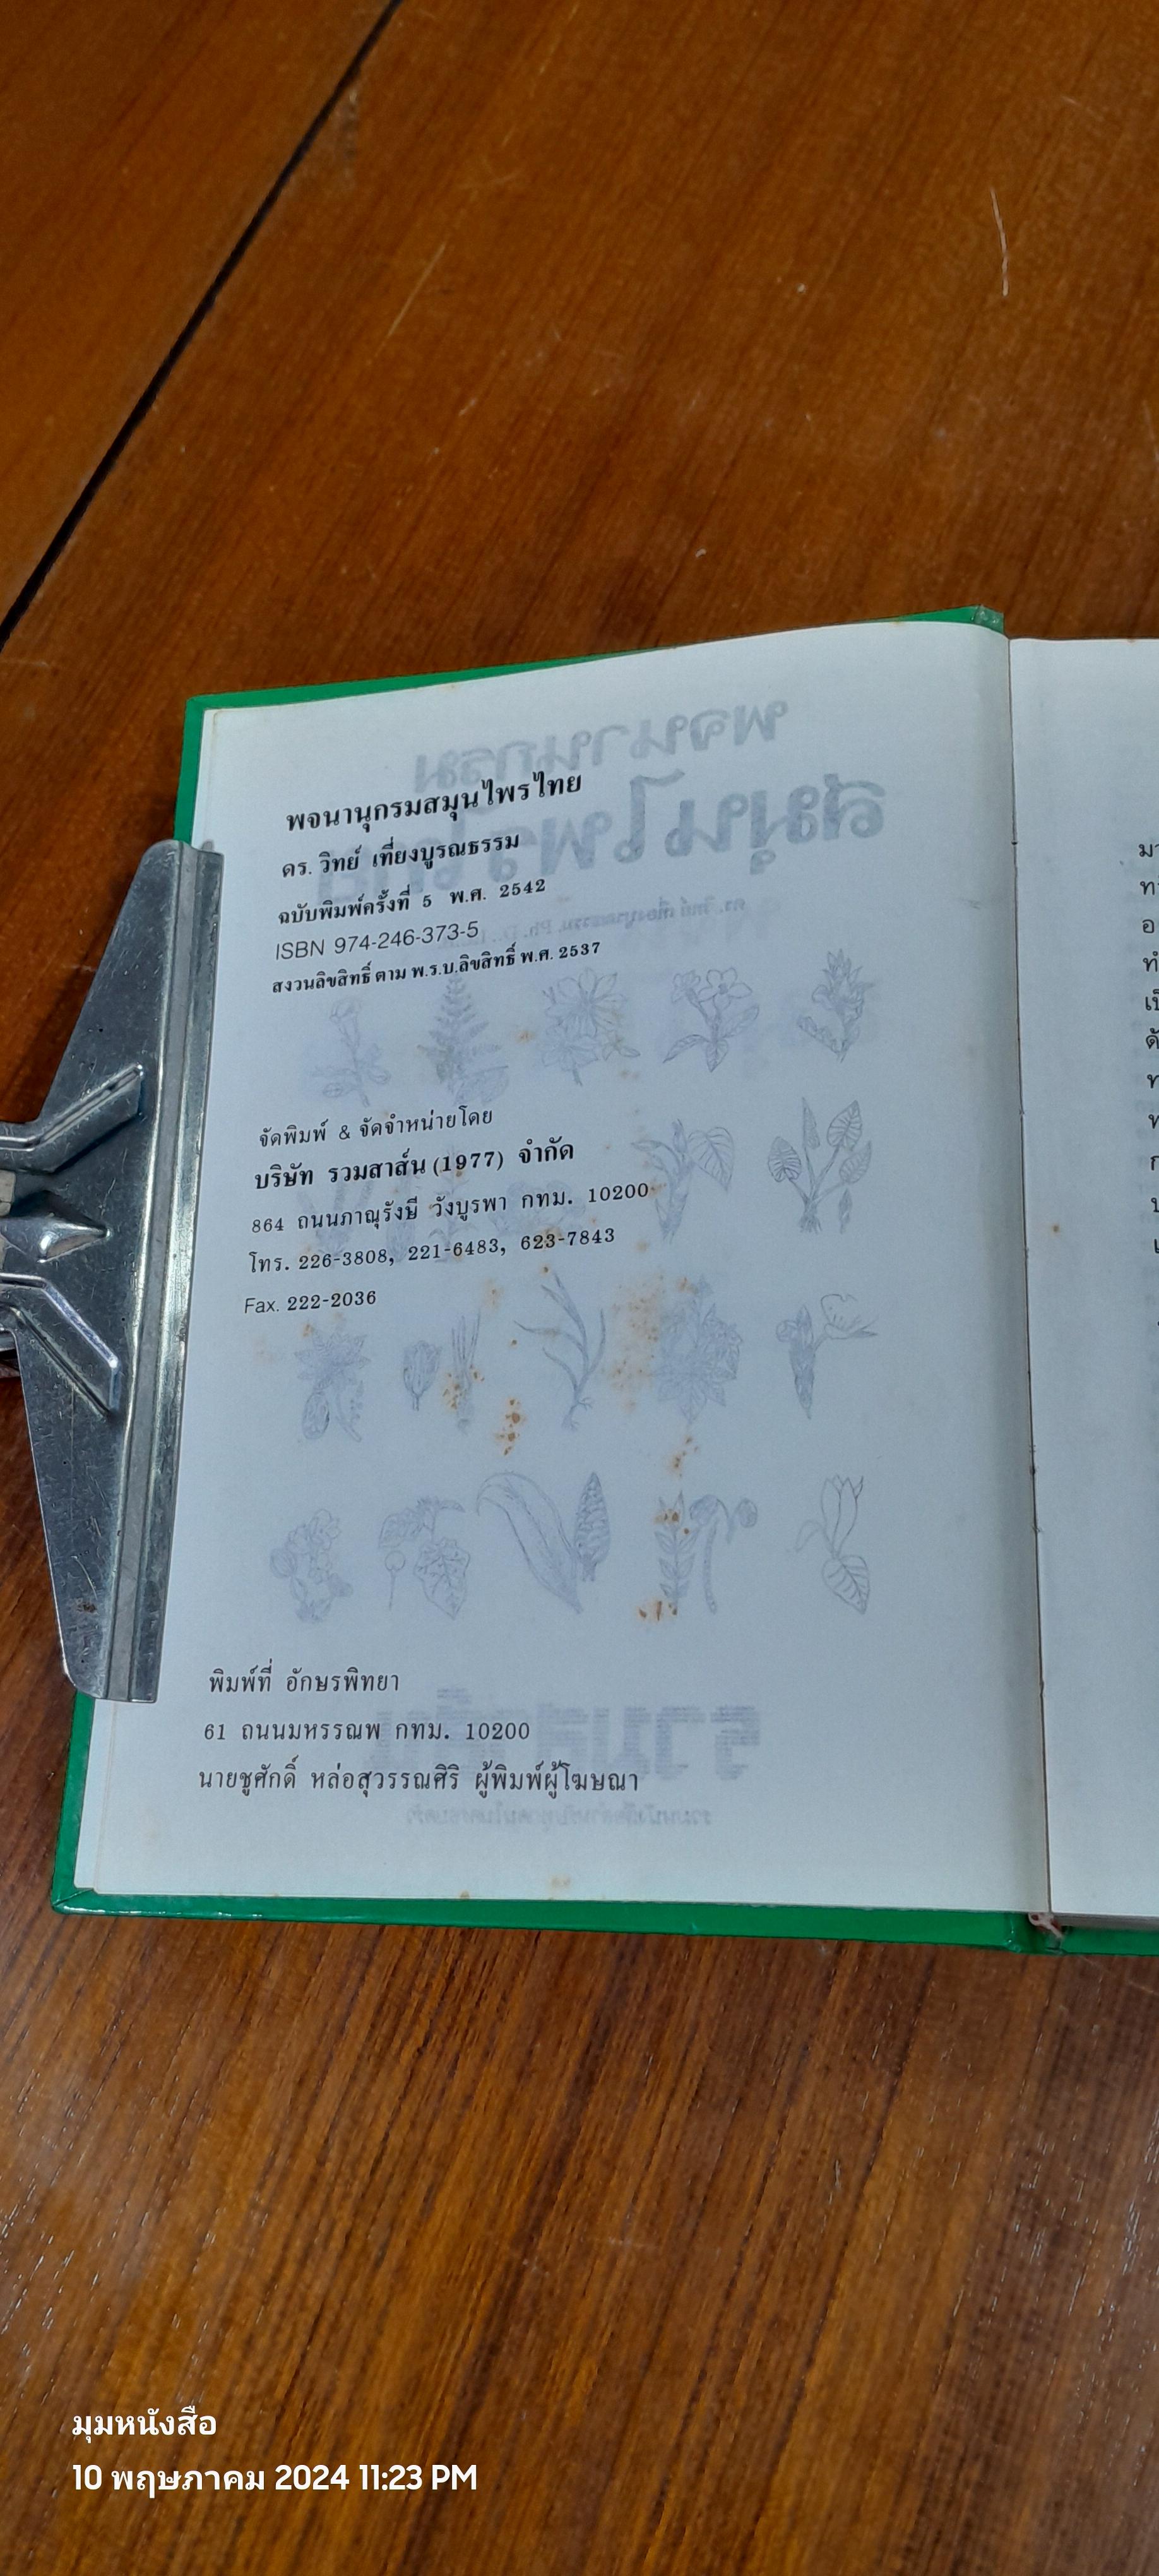 พจนานุกรมสมุนไพรไทย
ดร. วิทย์ เที่ยงบูรณธรรม
ฉบับพิมพ์ครั้งที่ 5 พ.ศ. 2542
ISBN 974-246-373-5
สงวนลิขสิทธิ์ ตาม พ.ร.บ.ลิขสิทธิ์ พ.ศ. 2537
จัดพิมพ์ & จัดจำหน่ายโดย
บริษัท รวมสาส์น (1977) จำกัด
864 ถนนภาณุรังษี วังบูรพา กทม. 10200
โทร. 226-3808, 221-6483, 623-7843
Fax. 222-2036
พิมพ์ที่ อักษรพิทยา
61 ถนนมหรรณพ กทม. 10200
นายชูศักดิ์ หล่อสุวรรณศิริ ผู้พิมพ์ผู้โฆษณา
มุมหนังสือ
10 พฤษภาคม 2024 11:23 PM